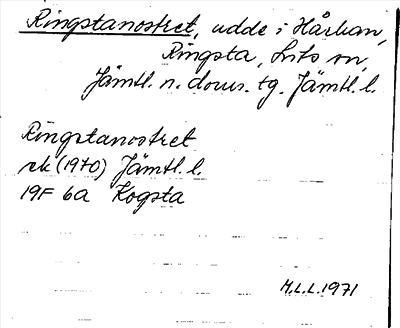 Ringstanostret, udde i Hårkan,
Ringsta, Lits sn,
Jämtl. n. doms. tg. Jämtl. l.
Ringstanostret
rk (1970) Jämtl. l.
19F 6a Kogsta
M.L.L. 1971